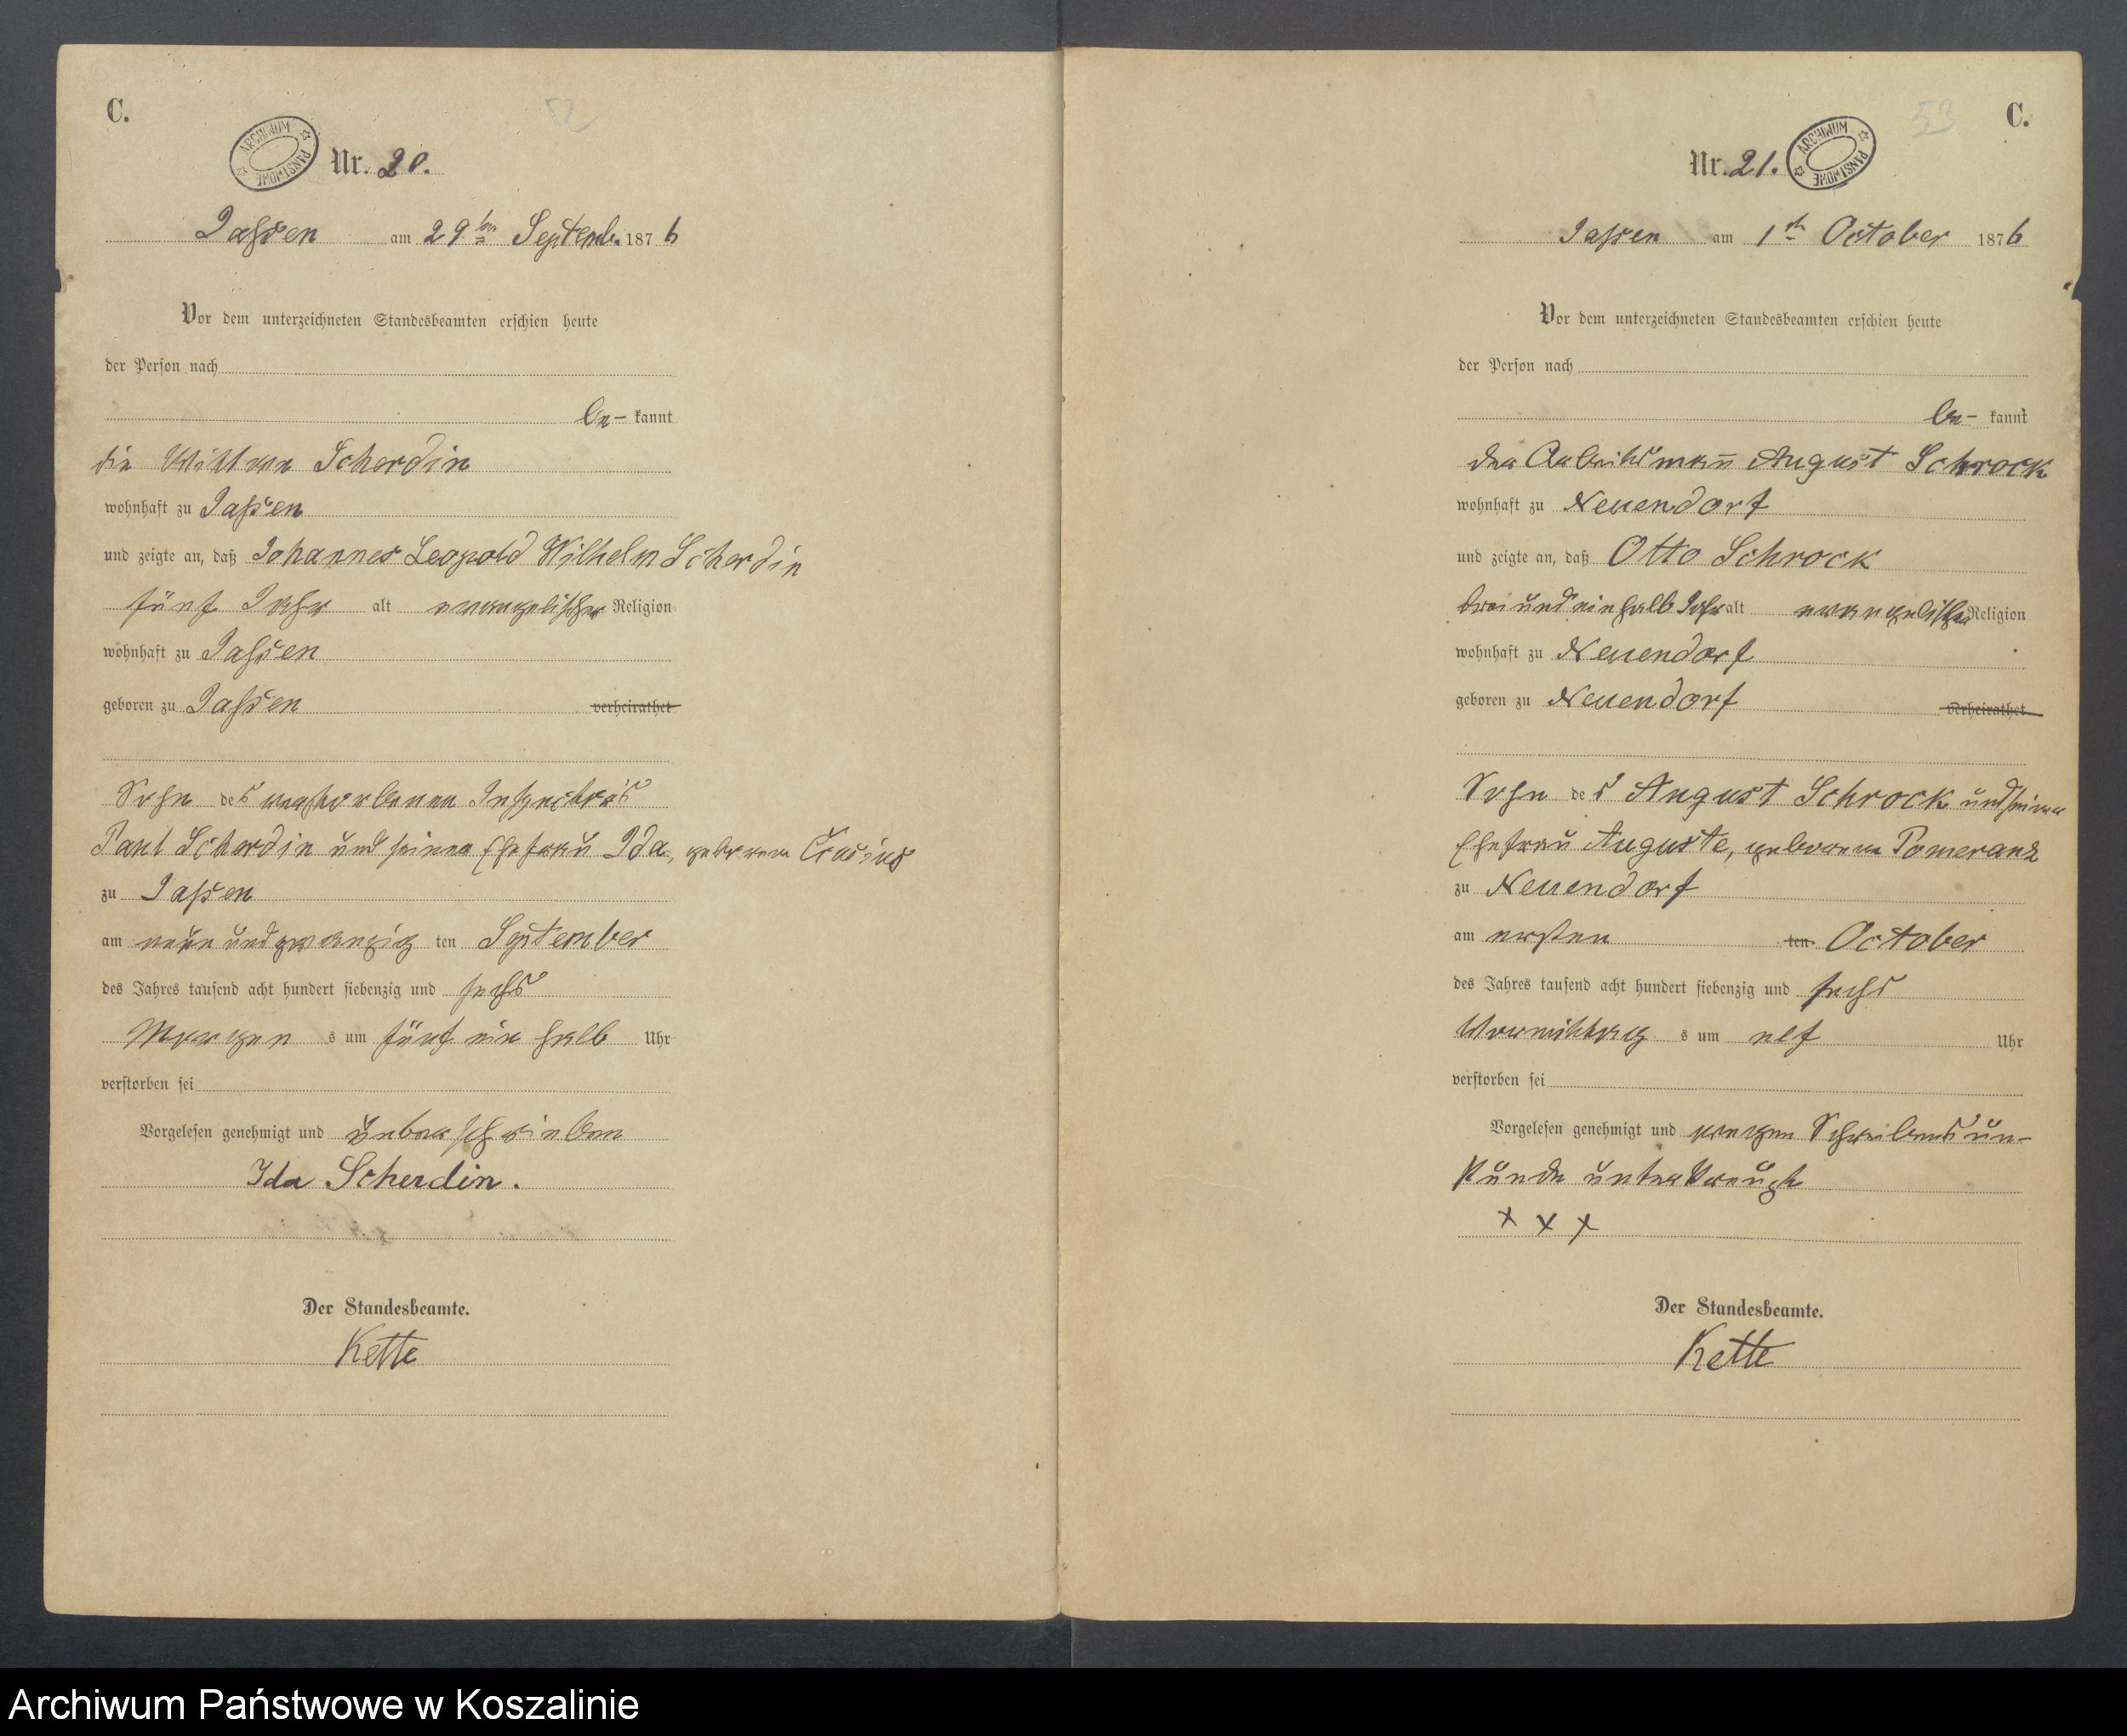 C.
52
ARCHIWUM PAŃSTWOWE
Nr. 20.
Jassen am 29ten Septemb. 1876
Vor dem unterzeichneten Standesbeamten erschien heute
der Person nach
be- kannt
die Wittwe Scherdin
wohnhaft zu Jassen
und zeigte an, daß Johannes Leopold Wilhelm Scherdin
fünf Jahr alt evangelischer Religion
wohnhaft zu Jassen
geboren zu Jassen verheirathet
Sohn des verstorbenen Inspectors
Paul Scherdin und seiner Ehefrau Ida, geborene
zu Jassen
am neun und zwanzig ten September
des Jahres tausend acht hundert siebenzig und sechs
Morgen s um fünf ein halb Uhr
verstorben sei
Vorgelesen genehmigt und unterschrieben
Ida Scherdin.
Der Standesbeamte.
Kette
53 C.
Nr. 21.
ARCHIWUM PAŃSTWOWE
Jassen am 1ten October 1876
Vor dem unterzeichneten Standesbeamten erschien heute
der Person nach
be- kannt
der Arbeitsmann August Schrock
wohnhaft zu Neuendorf
und zeigte an, daß Otto Schrock
und ein halb Jahr alt evangelischer Religion
wohnhaft zu Neuendorf
geboren zu Neuendorf verheirathet
Sohn des August Schrock und seiner
Ehefrau Auguste, geborene Pomeranz
zu Neuendorf
am ersten ten October
des Jahres tausend acht hundert siebenzig und sechs
Vormittag s um elf Uhr
verstorben sei
Vorgelesen genehmigt und wegen Schreibens un-
kunde unterkreuzt
x x x
Der Standesbeamte.
Kette
Archiwum Państwowe w Koszalinie